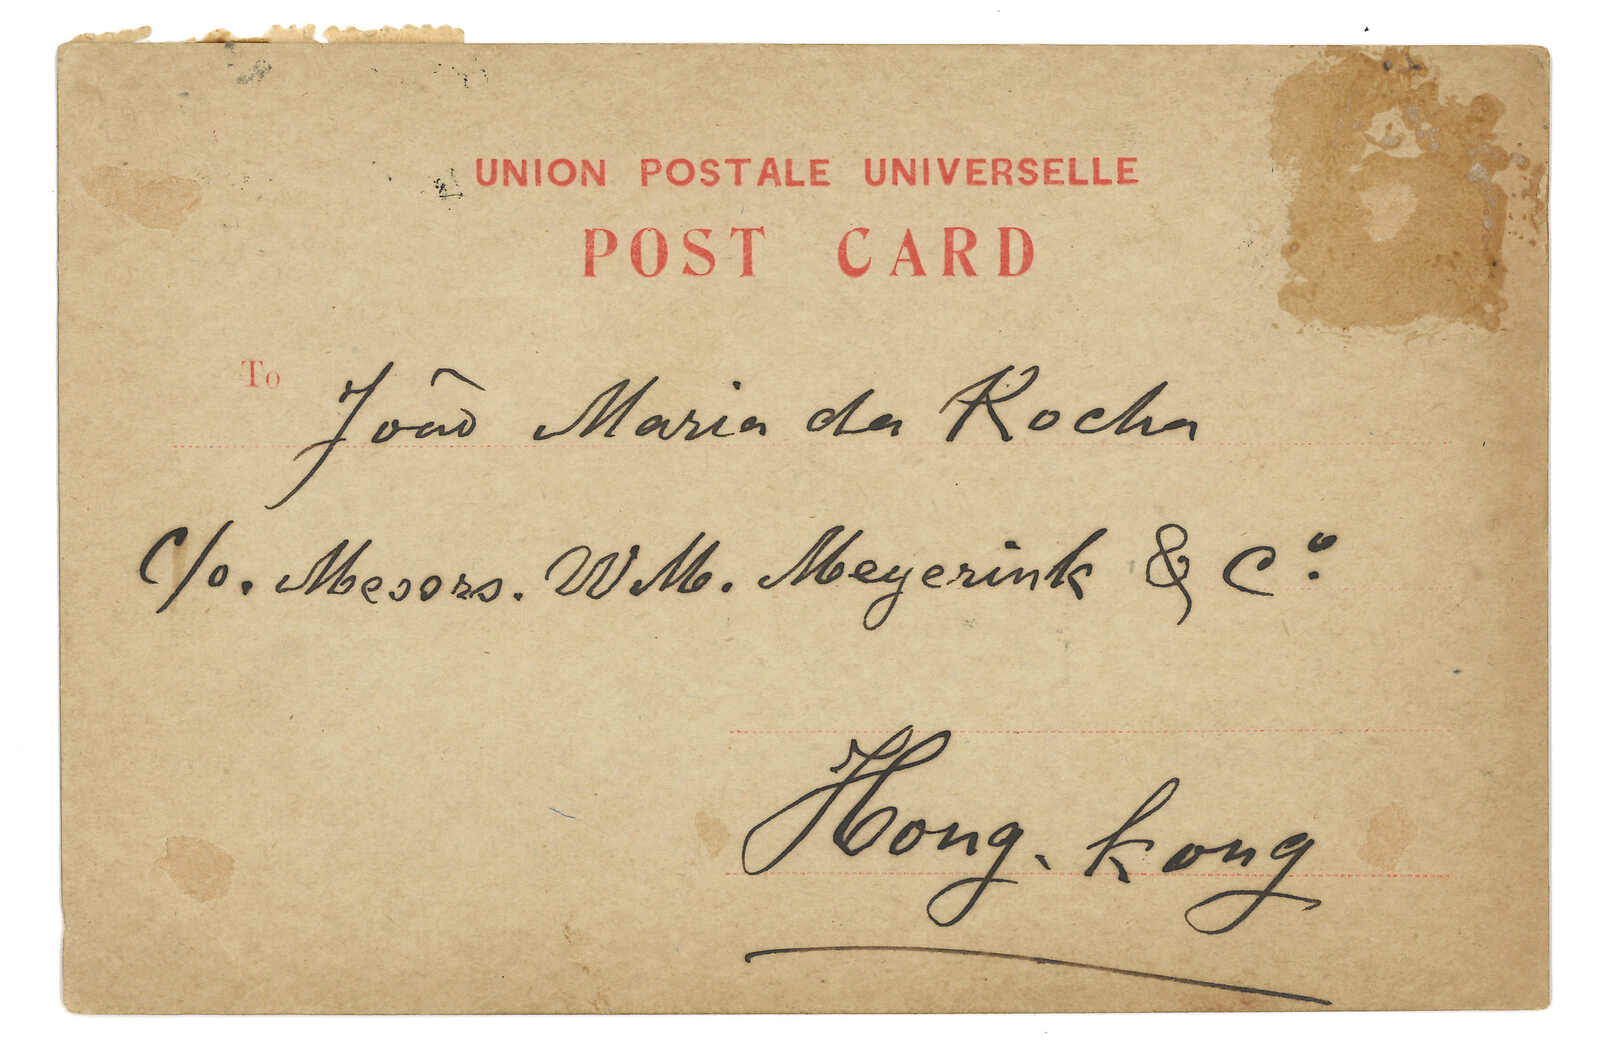 UNION POSTALE UNIVERSELLE
POST CARD
To João Maria da Rocha
C/o. Messrs. WM. Meyerink & Cº.
Hong-kong